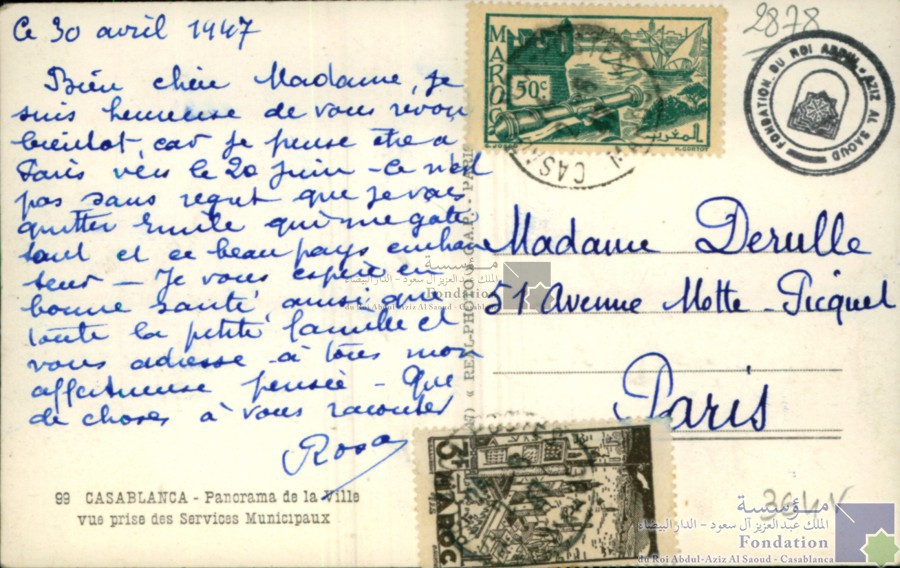 Ce 30 avril 1947
Bien chère Madame, je
suis heureuse de vous revoir
bientôt car je pense être à
Paris vers le 20 juin - ce n'est
pas sans regret que je vais
quitter Emile qui me gate
tant et ce beau pays enchan
teur - Je vous espère en
bonne santé, ainsi que
toute la petite famille et
vous adresse à tous mon
affectueuse pensée - Que
de choses à vous raconter
Rosa
99 CASABLANCA - Panorama de la Ville
vue prise des Services Municipaux
« REAL-PHOTO » C.A.P. - PARIS
MAROC
50c
المغرب
H. CORTOT
CAS
3F MAROC
2878
FONDATION DU ROI ABDUL-AZIZ AL SAOUD
Madame Derulle
51 Avenue Motte-Picquet
Paris
مؤسسة
الملك عبد العزيز آل سعود - الدار البيضاء
Fondation
du Roi Abdul-Aziz Al Saoud - Casablanca
مؤسسة
الملك عبد العزيز آل سعود - الدار البيضاء
Fondation
du Roi Abdul-Aziz Al Saoud - Casablanca